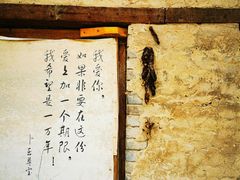 我爱你，
如果非要在这份
爱上加一个期限，
我希望是一万年！